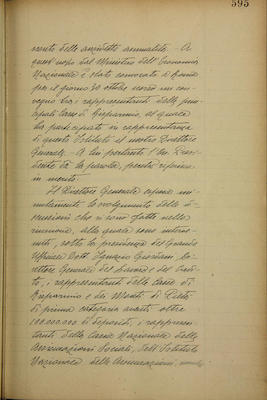 595
mento delle anzidette annualità. - A
quest'uopo dal Ministro dell'Economia
Nazionale è stato convocato a Roma
per il giorno 30 ottobre scorso un con-
vegno tra i rappresentanti delle prin-
cipali Casse di Risparmio, al quale
ha partecipato in rappresentanza
di questo Istituto il nostro Direttore
Generale. - A lui pertanto l'On. Presi-
dente dà la parola, perché riferisca
in merito.
Il Direttore Generale espone mi-
nutamente lo svolgimento delle di-
scussioni che si sono fatte nella
riunione, alla quale sono interve-
nuti, sotto la presidenza del Grande
Ufficiale Dott. Ignazio Giordani, Di-
rettore Generale del Lavoro e del Credi-
to, i rappresentanti delle Casse di
Risparmio e dei Monti di Pietà
di prima categoria aventi oltre
100.000.000 di depositi, i rappresen-
tanti della Cassa Nazionale delle
Assicurazioni Sociali, dell'Istituto
Nazionale delle Assicurazioni,